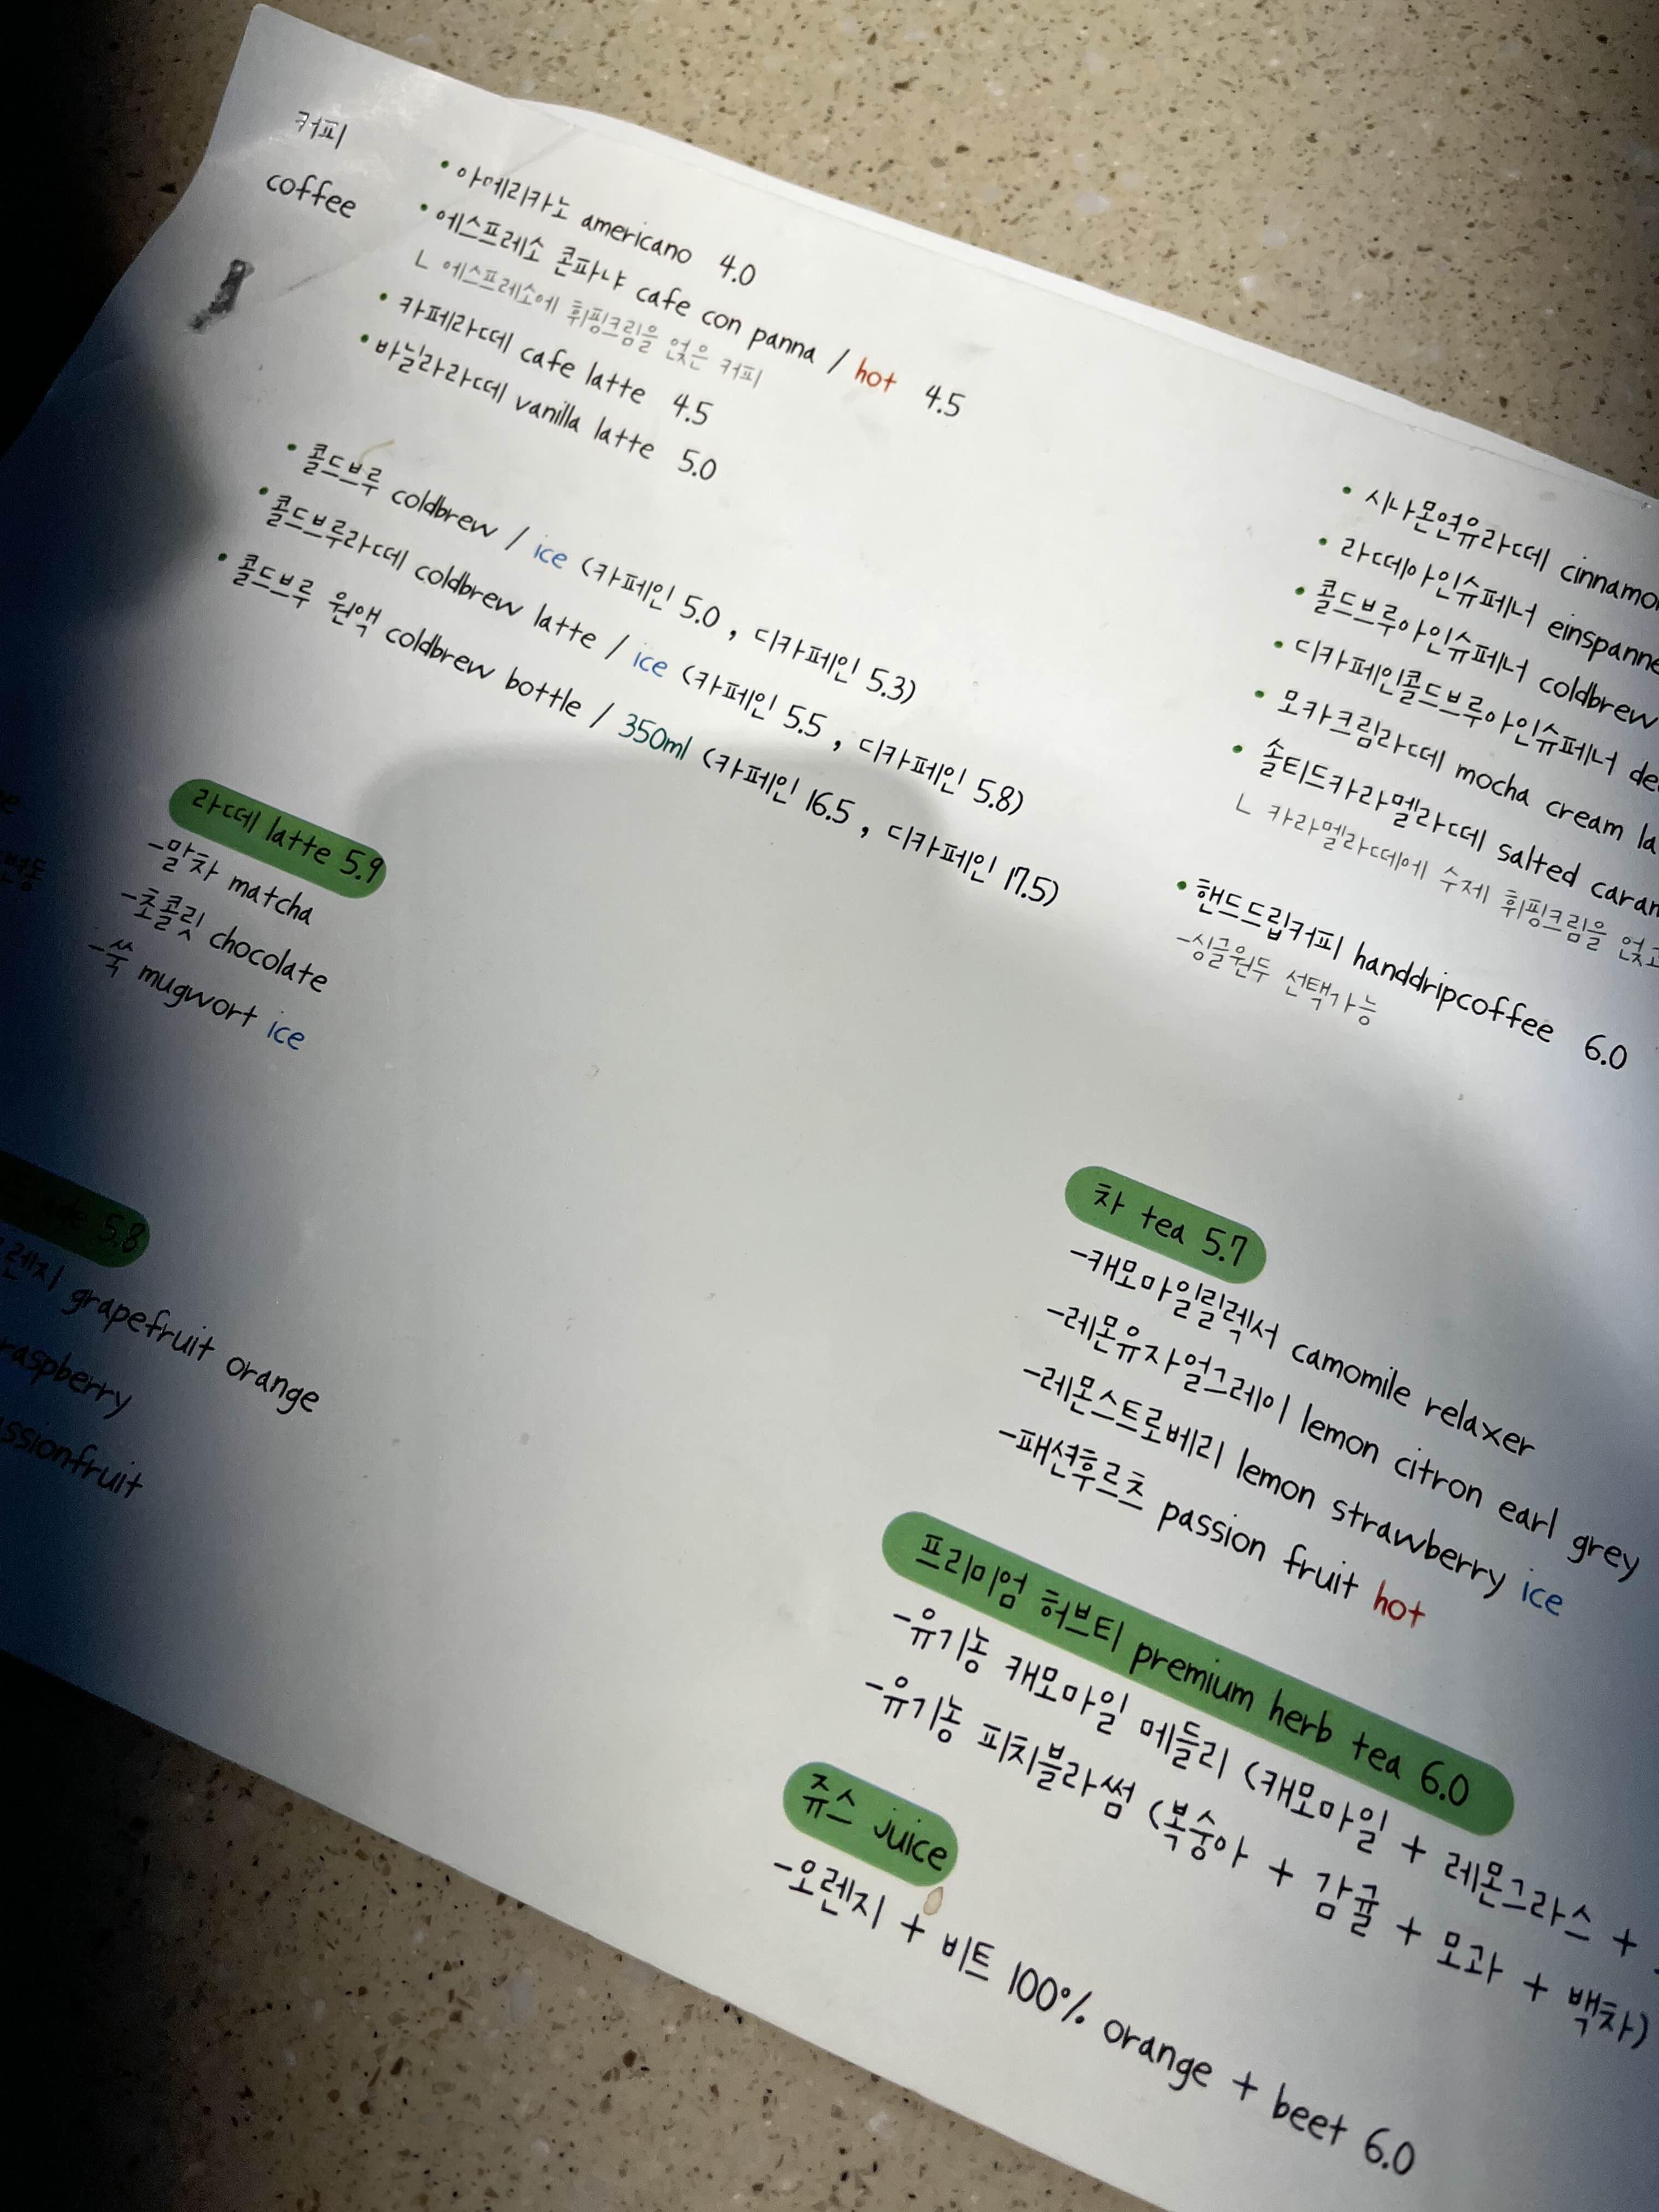 커피
coffee
• 아메리카노 americano 4.0
• 에스프레소 콘파냐 cafe con panna / hot 4.5
ㄴ 에스프레소에 휘핑크림을 얹은 커피
• 카페라떼 cafe latte 4.5
• 바닐라라떼 vanilla latte 5.0
• 콜드브루 coldbrew / ice (카페인 5.0 , 디카페인 5.3)
• 콜드브루라떼 coldbrew latte / ice (카페인 5.5 , 디카페인 5.8)
• 콜드브루 원액 coldbrew bottle / 350ml (카페인 16.5 , 디카페인 17.5)
• 시나몬연유라떼
• 라떼아인슈페너
• 콜드브루아인슈페너 coldbrew
• 디카페인콜드브루아인슈페너
• 모카크림라떼 mocha cream
• 솔티드카라멜라떼 salted
ㄴ 카라멜라떼에 수제 휘핑크림을
• 핸드드립커피 handdripcoffee 6.0
-싱글원두 선택가능
라떼 latte 5.9
-말차 matcha
-초콜릿 chocolate
-쑥 mugwort ice
5.8
grapefruit orange
raspberry
차 tea 5.7
-캐모마일릴렉서 camomile relaxer
-레몬유자얼그레이 lemon citron earl grey
-레몬스트로베리 lemon strawberry ice
-패션후르츠 passion fruit hot
프리미엄 허브티 premium herb tea 6.0
-유기농 캐모마일 메들리 (캐모마일 + 레몬그라스 +
-유기농 피치블라썸 (복숭아 + 감귤 + 모과 + 백차)
쥬스 juice
-오렌지 + 비트 100% orange + beet 6.0